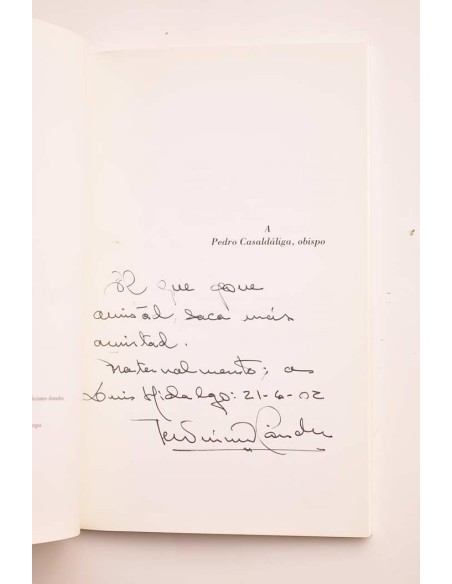 A
Pedro Casaldáliga, obispo
El que pone
amistad, saca más
amistad.
Fraternalmente; a
Luis Hidalgo: 21-6-02